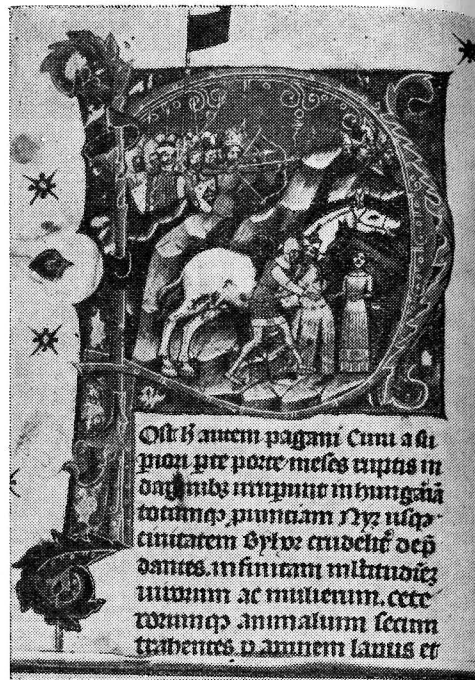 Ost h̄ autem pagani Cuni a su
piori pͣte porte meses ruptis in
daginibꝫ irrupunt in hungaͣiā
totamqꝫ puinciam Nyr usqꝫ
ciuitatem Byhor crudelit͛ dep̄
dantes. infinitam mltitudinēꝫ
uirorum ac mulierum. cete
rorumqꝫ animalium secum
trahentes. ꝑ amnem lapus et